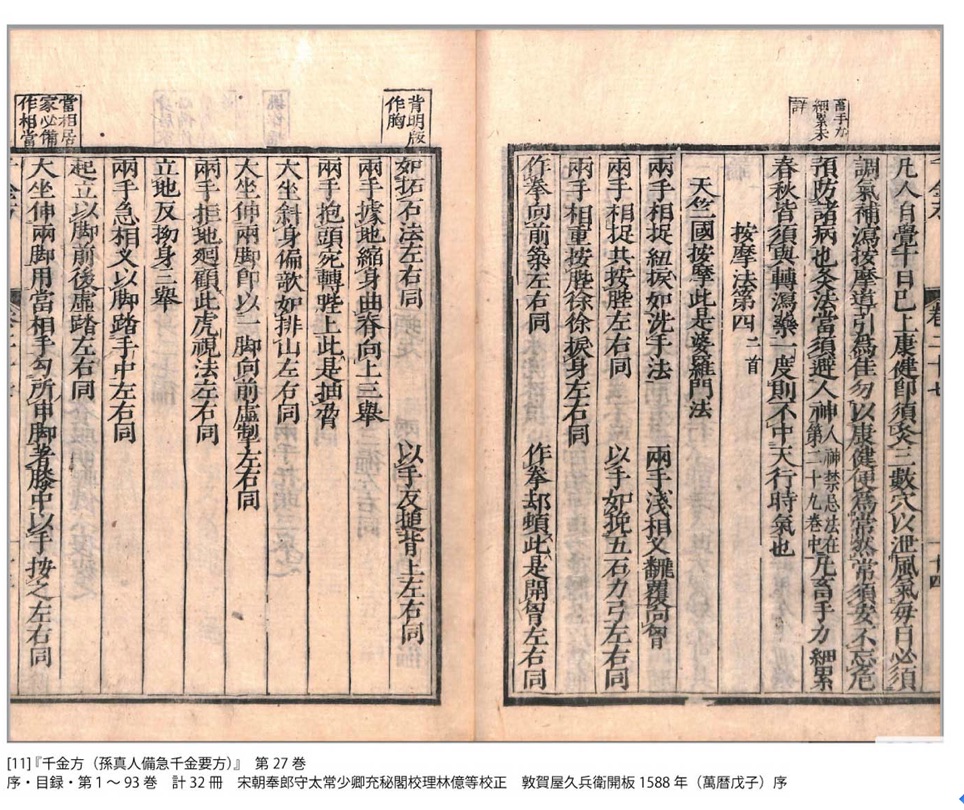 畜手力
細累未
詳
凡人自覺十日已上康健即須灸三數穴以泄風氣每日必須
調氣補瀉按摩導引爲佳勿以康健便爲常然常須安不忘危
預防諸病也灸法當須避人神人神禁忌法在第二十九卷中凡畜手力細累
春秋皆須與轉瀉藥一度則不中天行時氣也
按摩法第四二首
天竺國按摩此是婆羅門法
兩手相捉紐捩如洗手法　兩手淺相叉翻覆向胷
兩手相捉共按䏶左右同　以手如挽五石力弓左右同
兩手相重按䏶徐徐捩身左右同
作拳向前築左右同　作拳却頓此是開胷左右同
背明版
作胸
如拓石法左右同　以手反搥背上左右同
兩手據地縮身曲脊向上三舉
兩手抱頭宛轉䏶上此是抽脅
大坐斜身偏欹如排山左右同
大坐伸兩脚即以一脚向前虛掣左右同
兩手拒地廻顧此虎視法左右同
立地反拗身三舉
兩手急相叉以脚踏手中左右同
當相居
家必備
作相當
起立以脚前後虛踏左右同
大坐伸兩脚用當相手勾所申脚著膝中以手按之左右同
[11]『千金方（孫真人備急千金要方）』　第 27 巻
序・目録・第 1 ～ 93 巻　計 32 冊　宋朝奉郎守太常少卿充秘閣校理林億等校正　敦賀屋久兵衛開板 1588 年（萬暦戊子）序